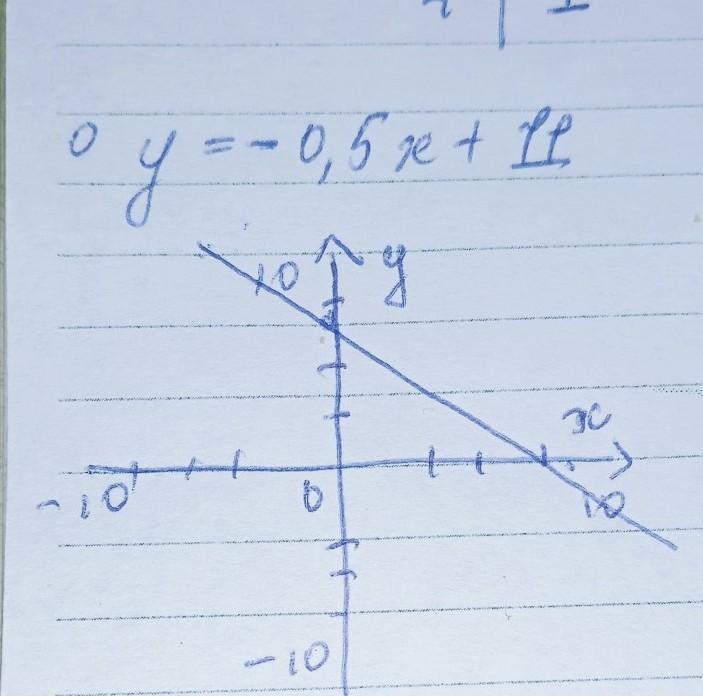 y = -0,5x + 11
10 y
x
-10 0 10
-10